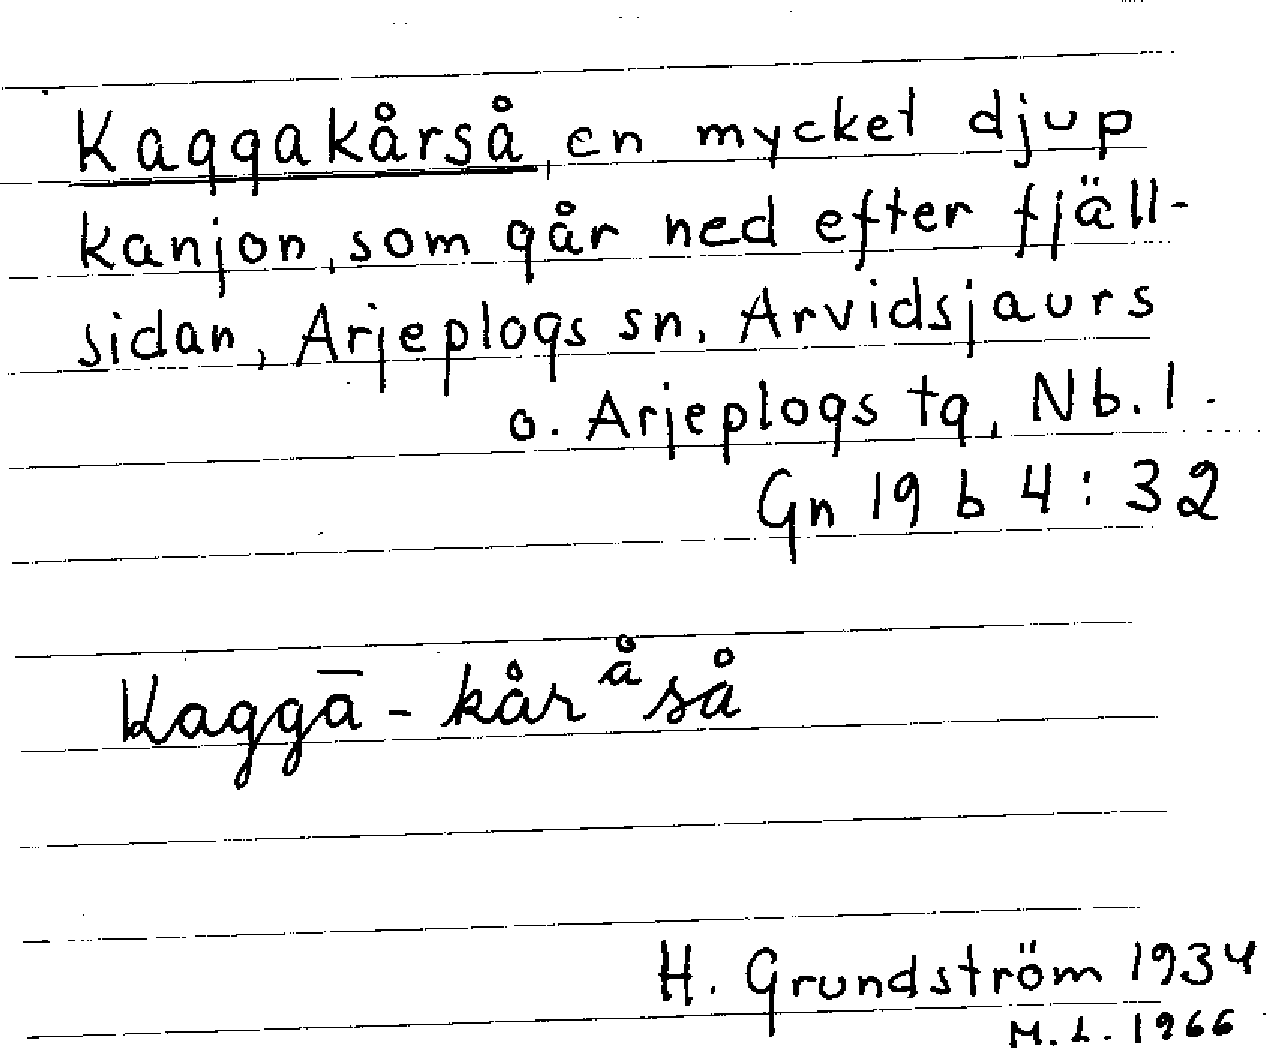 Kaggakårså, en mycket djup
kanjon, som går ned efter fjäll-
sidan, Arjeplogs sn, Arvidsjaurs
o. Arjeplogs tg, Nb. l.
Gn 19 b 4:32
Kaggā-kåråså
H. Grundström 1934
M. L. 1966